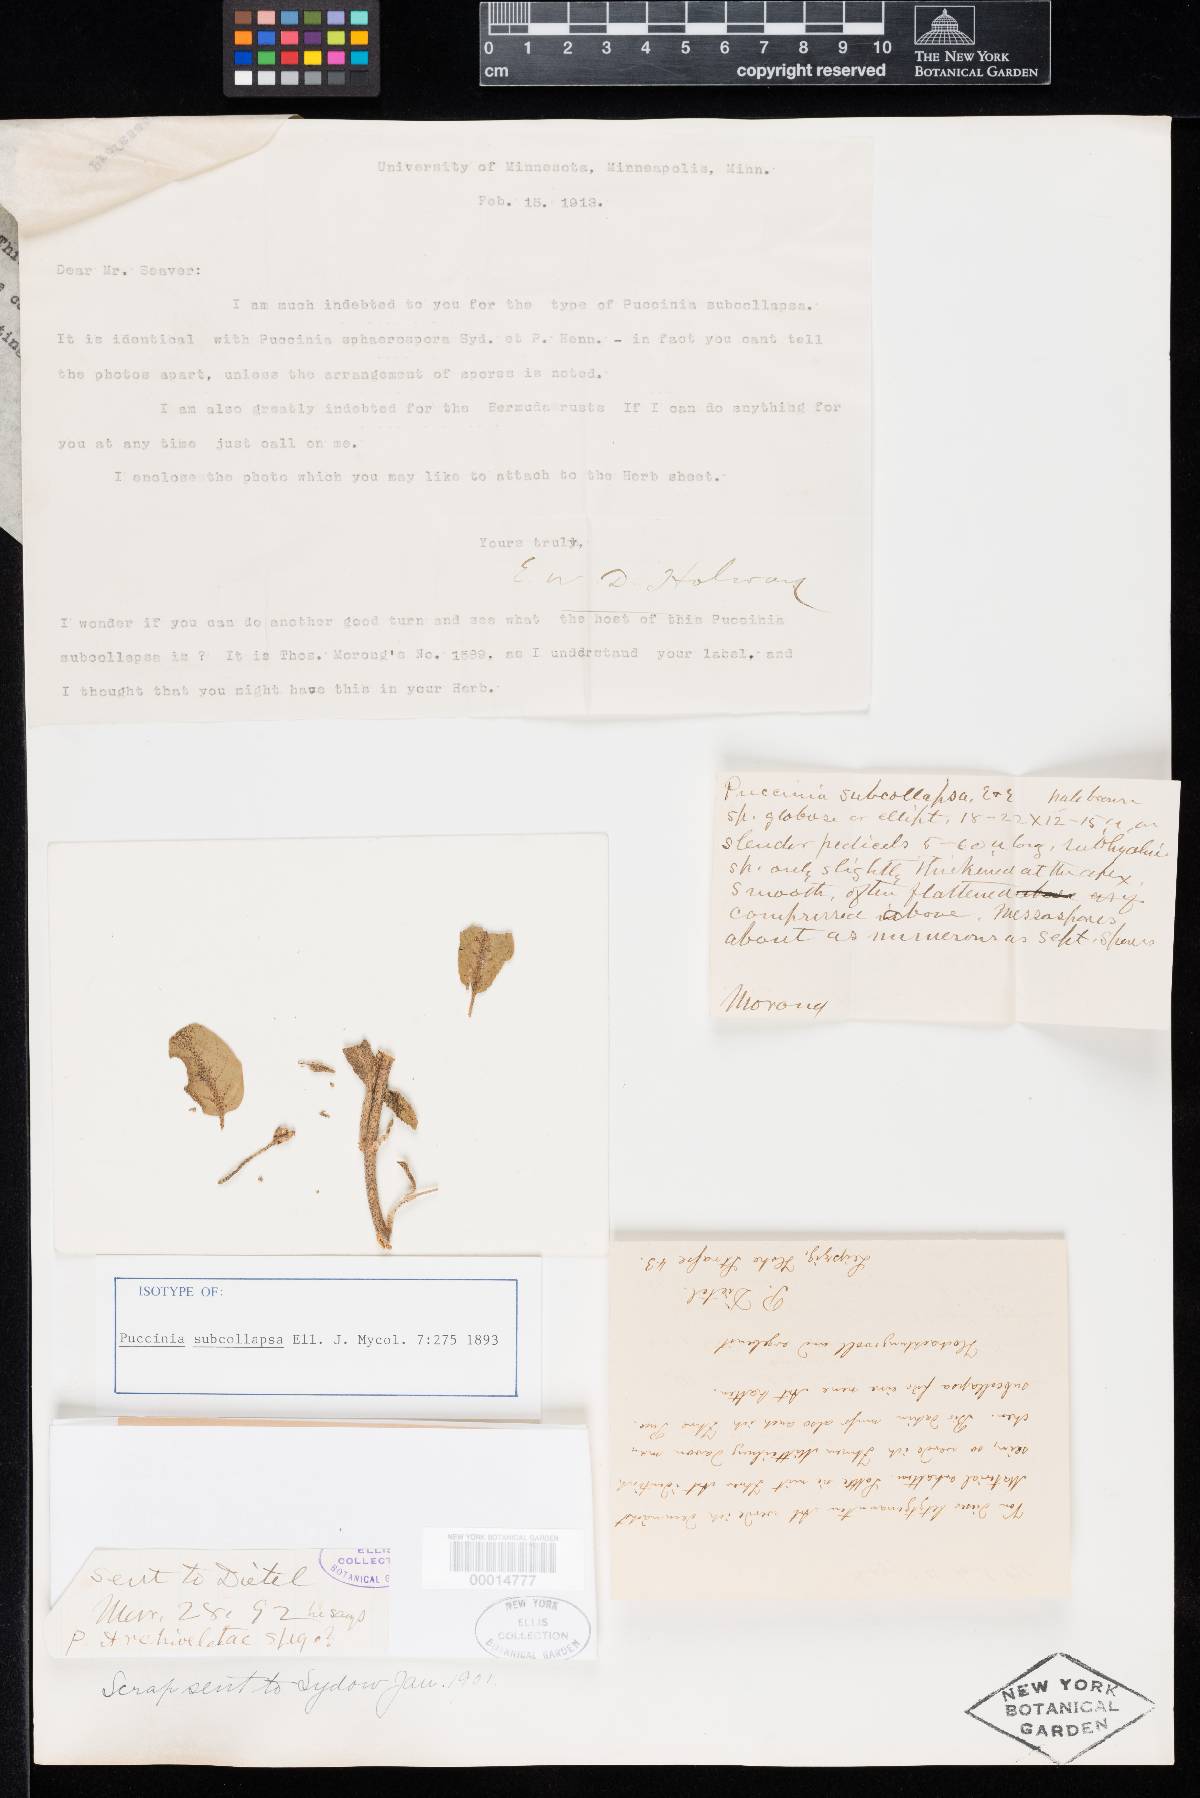 0 1 2 3 4 5 6 7 8 9 10
cm
copyright reserved
THE NEW YORK
BOTANICAL GARDEN
University of Minnesota, Minneapolis, Minn.
Feb. 15. 1913.
Dear Mr. Seaver:
I am much indebted to you for the type of Puccinia subcollapsa.
It is identical with Puccinia sphaerospora Syd. et P. Henn. - in fact you cant tell
the photos apart, unless the arrangement of spores is noted.
I am also greatly indebted for the Bermuda rusts If I can do anything for
you at any time just call on me.
I enclose the photo which you may like to attach to the Herb sheet.
Yours truly,
E. W. D. Holway
I wonder if you can do another good turn and see what the host of this Puccinia
subcollapsa is ? It is Thos. Morong's No. 1589, as I understand your label, and
I thought that you might have this in your Herb.
Puccinia subcollapsa, E&E pale brown
sp. globose or ellipt, 18-22 X 12-15 u, on
slender pedicels 5-60 u long, subhyaline
sp. only slightly thickened at the apex,
smooth, often flattened as if
compressed above. Mesospores
about as numerous as sept. spores
Morong
ISOTYPE OF:
Puccinia subcollapsa Ell. J. Mycol. 7:275 1893
Von dieser letztgenannten Art werde ich demnächst
Material erhalten. Sollte sie mit Ihrer Art identisch
sein, so werde ich Ihnen Mitteilung davon machen.
Bis dahin muss also auch ich Ihre Pucc.
subcollapsa für eine neue Art halten.
Hochachtungsvoll und ergebenst
P. Dietel.
Leipzig, Hohe Strasse 43.
NEW YORK BOTANICAL GARDEN
00014777
ELLIS
COLLECT
BOTANICAL G
sent to Dietel
Mar. 28. 92 he says
P. Arechavelatae speg?
NEW YORK
ELLIS
COLLECTION
BOTANICAL GARDEN
Scrap sent to Sydow Jan. 1901.
NEW YORK
BOTANICAL
GARDEN